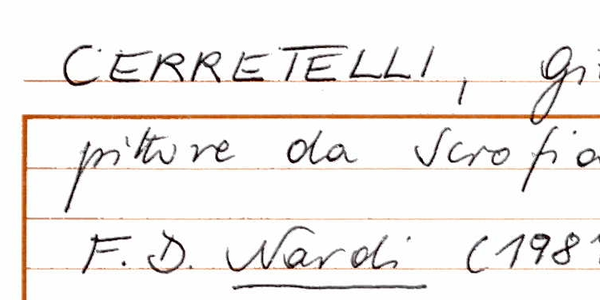 CERRETELLI, Gi
pittore da Scrofia
F. D. Nardi (1981